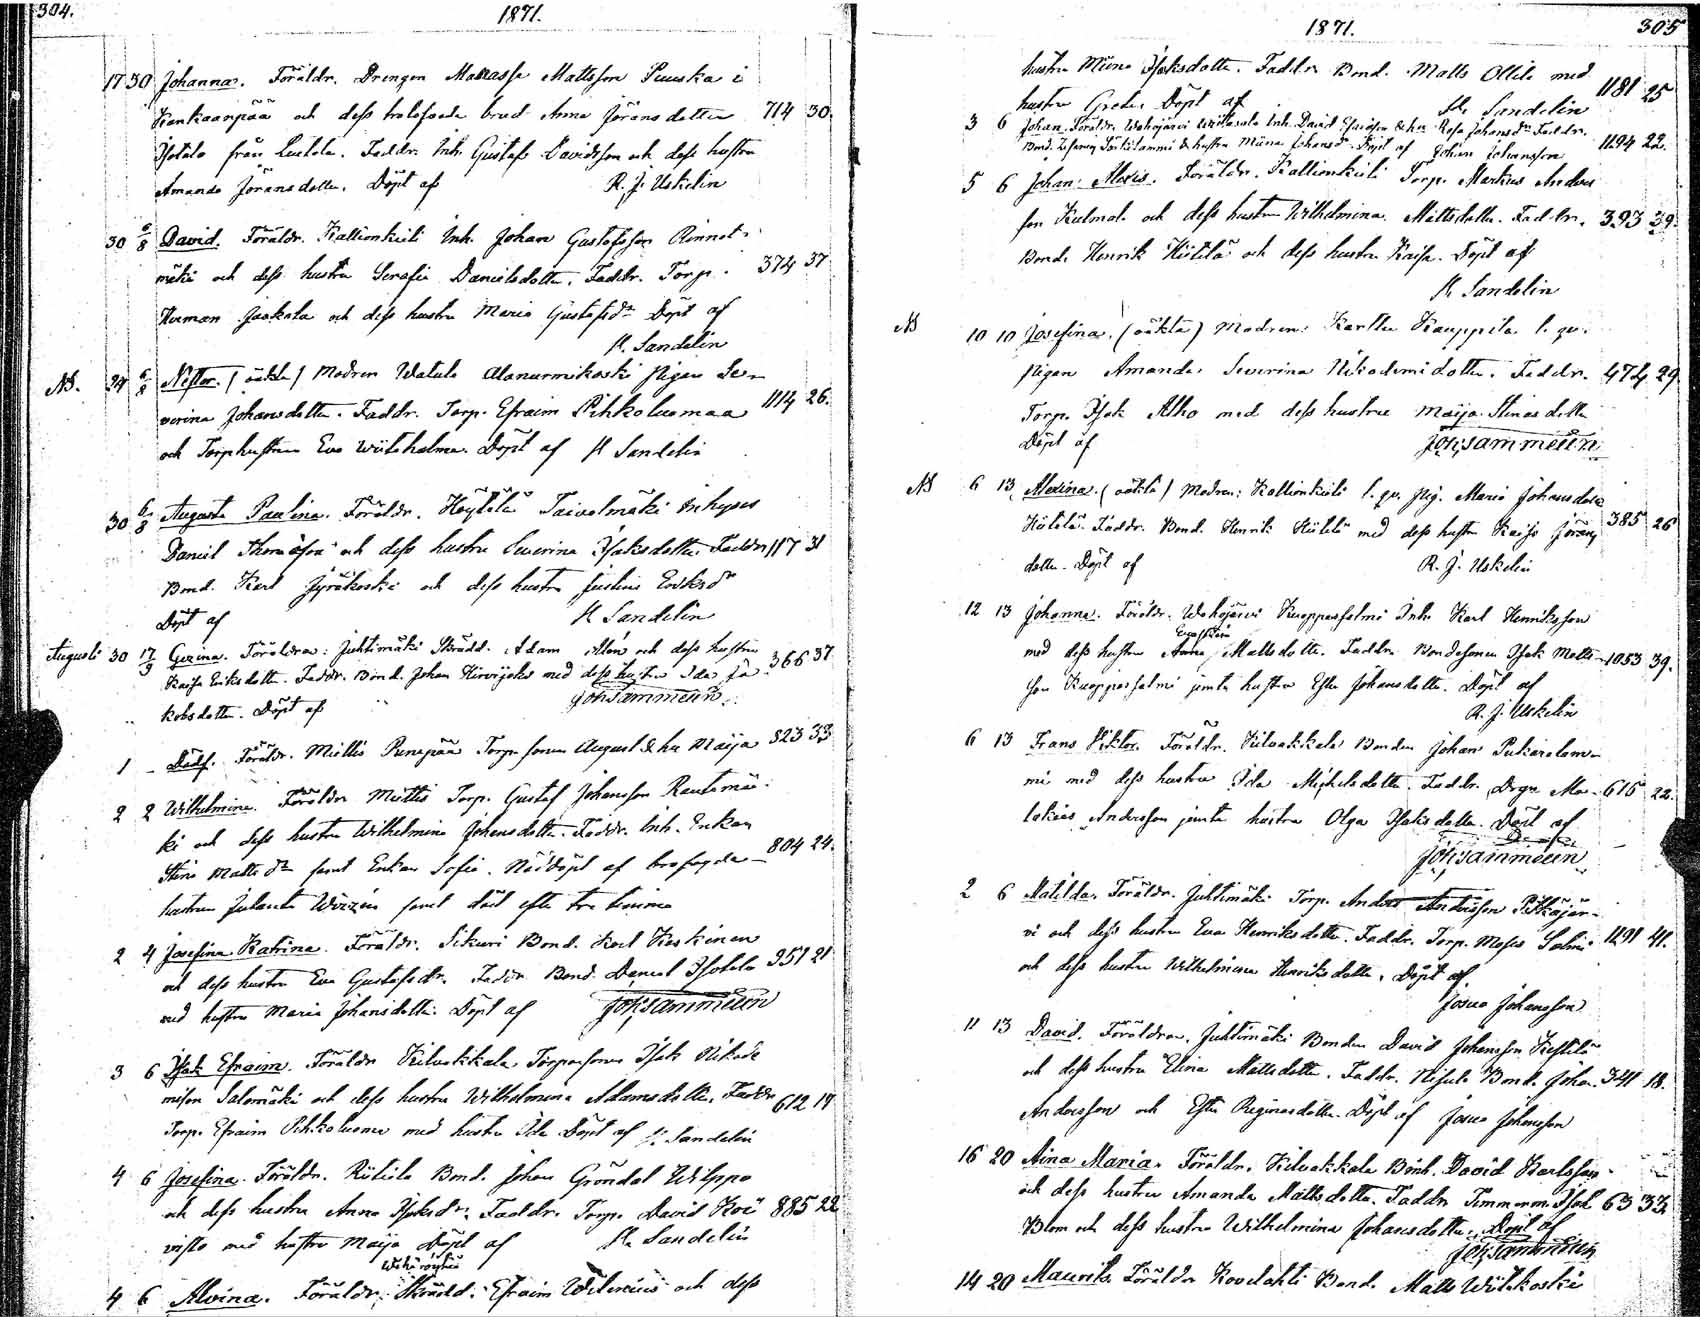 304.
1871.
17 30 Johanna. Föräldr. Drengen Manasse Mattsson Puuska i
Kankaanpää och dess trolofvade brud Anna Jöransdotter 714 30.
Isotalo från Luitola. Faddr. Inh. Gustaf Davidsson och dess hustru
Amanda Jöransdotter. Döpt af R. J. Uskelin
30 6/8 David. Föräldr. Kallionkieli Inh. Johan Gustafsson Rinnet-
mäki och dess hustru Serafia Danielsdotter. Faddr. Torp. 374 37
Herman Jaakola och dess hustru Maria Gustafsdr Döpt af
K. Sandelin
NB. 24 6/8 Nestor. (oäkta) Modren Watula Alanurmikoski Pigan Se-
verina Johansdotter. Faddr. Torp. Efraim Pihkoluomaa 1114 26.
och Torp.hustrun Eva Wiitaholma. Döpt af K Sandelin
30 6/8 Augusta Paulina. Föräldr. Höytölä Taivalmäki Inhyses
Daniel Thomasson och dess hustru Severina Isaksdotter. Faddr 117 31
Bond. Karl Jyräkoski och dess hustru Justina Eriksdr
Döpt af K Sandelin
Augusti 30 17/9 Gezina. Föräldrar: Juhtimäki Skrädd. Adam Alén och dess hustru
Kaisa Eriksdotter. Faddr. Bond. Johan Hirvijoki med dess hustru Ida Ja- 366 37
kobsdotter. Döpt af Joh. Sammeun
1 - Dödf. Föräldr. Miettis Punapää Torp. sonen August & hu Maija 823 33
2 2 Wilhelmina. Föräldr Miettis Torp. Gustaf Johansson Rautamä-
ki och dess hustru Wilhelmina Johansdotter. Faddr. Inh. Enkan
Stina Mattsdr samt Enkan Sofia. Nöddöpt af 804 24.
hustrun samt död efter tre timma
2 4 Josefina Katrina. Föräldr. Sikuri Bond. Karl Keskinen
och dess hustru Eva Gustafsdr. Faddr. Bond. Daniel Isotalo 951 21
med hustru Maria Johansdotter. Döpt af Joh. Sammeun
3 6 Isak Efraim. Föräldr Kilvakkala Torparsonen Isak Nikode-
misson Salomäki och dess hustru Wilhelmina Adamsdotter. Faddr 612 17
Torp. Efraim Pihkoluoma med hustru Ida Döpt af K. Sandelin
4 6 Josefina. Föräldr. Riitiala Bond. Johan Gröndal Wilppo
och dess hustru Anna Isaksdr. Faddr. Torp. David Koi- 885 22
visto med hustru Maija Döpt af K. Sandelin
4 6 Alvina. Föräldr. Skrädd. Efraim och dess
1871.
305
hustru Miina Isaksdotter. Faddr Bond. Matts Ollila med 1181 25
hustru Greta. Döpt af K. Sandelin
3 6 Johan. Föräldr. Wahojärvi Inh. David Esaiasson & hu Rosa Johansdr Faddr.
Bond. & hustru Miina Johansdr. Döpt af Johan Johansson 1194 22.
5 6 Johan Alexis. Föräldr. Kallionkieli Torp. Markus Anders-
son Kulmala och dess hustru Wilhelmina Mattsdotter. Faddr. 393 39.
Bond. Henrik Hiitelä och dess hustru Kaisa. Döpt af
K. Sandelin
NB 10 10 Josefina. (oäkta) Modren: Karttu Kauppila l. qv.
Pigan Amanda Severina Nikodemidotter. Faddr. 474 29
Torp. Isak Alho med dess hustru Maija Stinasdotter
Döpt af Joh. Sammeun
NB 6 13 Alexina. (oäkta) Modren: Kallionkieli l. qv. Pig. Maria Johansdotter
Hiitelä. Faddr. Bond. Henrik Hiitelä med dess hustru Kaisa Jörans- 385 26
dotter. Döpt af R. J. Uskelin
12 13 Johanna. Föräldr. Wahojärvi Kuoppasalmi Inh. Karl Henriksson
med dess hustru Anna Mattsdotter. Faddr. Bondesonen Isak Matts- 1053 39.
son Kuoppasalmi jemte hustru Ester Johansdotter. Döpt af
R. J. Uskelin
6 13 Frans Viktor. Föräldr. Kilvakkala Bonden Johan Pukaralam-
mi med dess hustru Ida Mickelsdotter. Faddr. Drgn Ma- 615 22.
lakias Andersson jemte hustru Olga Isaksdotter. Döpt af
Joh. Sammeun
2 6 Matilda. Föräldr. Juhtimäki Torp. Anders Andersson Pitkäjär-
vi och dess hustru Eva Henriksdotter. Faddr. Torp. Moses Salmi 1291 41.
och dess hustru Wilhelmina Henriksdotter. Döpt af
Josua Johansson
11 13 David. Föräldrar. Juhtimäki Bonden David Johansson Kesttilä
och dess hustru Elina Mattsdotter. Faddr. Bond. Johan 341 18.
Andersson och Ester Reginasdotter. Döpt af Josua Johansson
16 20 Aina Maria. Föräldr. Kilvakkala Bönh. David Karlsson
och dess hustru Amanda Mattsdotter. Faddr Timmerm. Isak 633 33
Blom och dess hustru Wilhelmina Johansdotter. Döpt af
Joh. Sammeun
14 20 Maurits. Föräldr Kovelahti Bond. Matts Wiitakoski